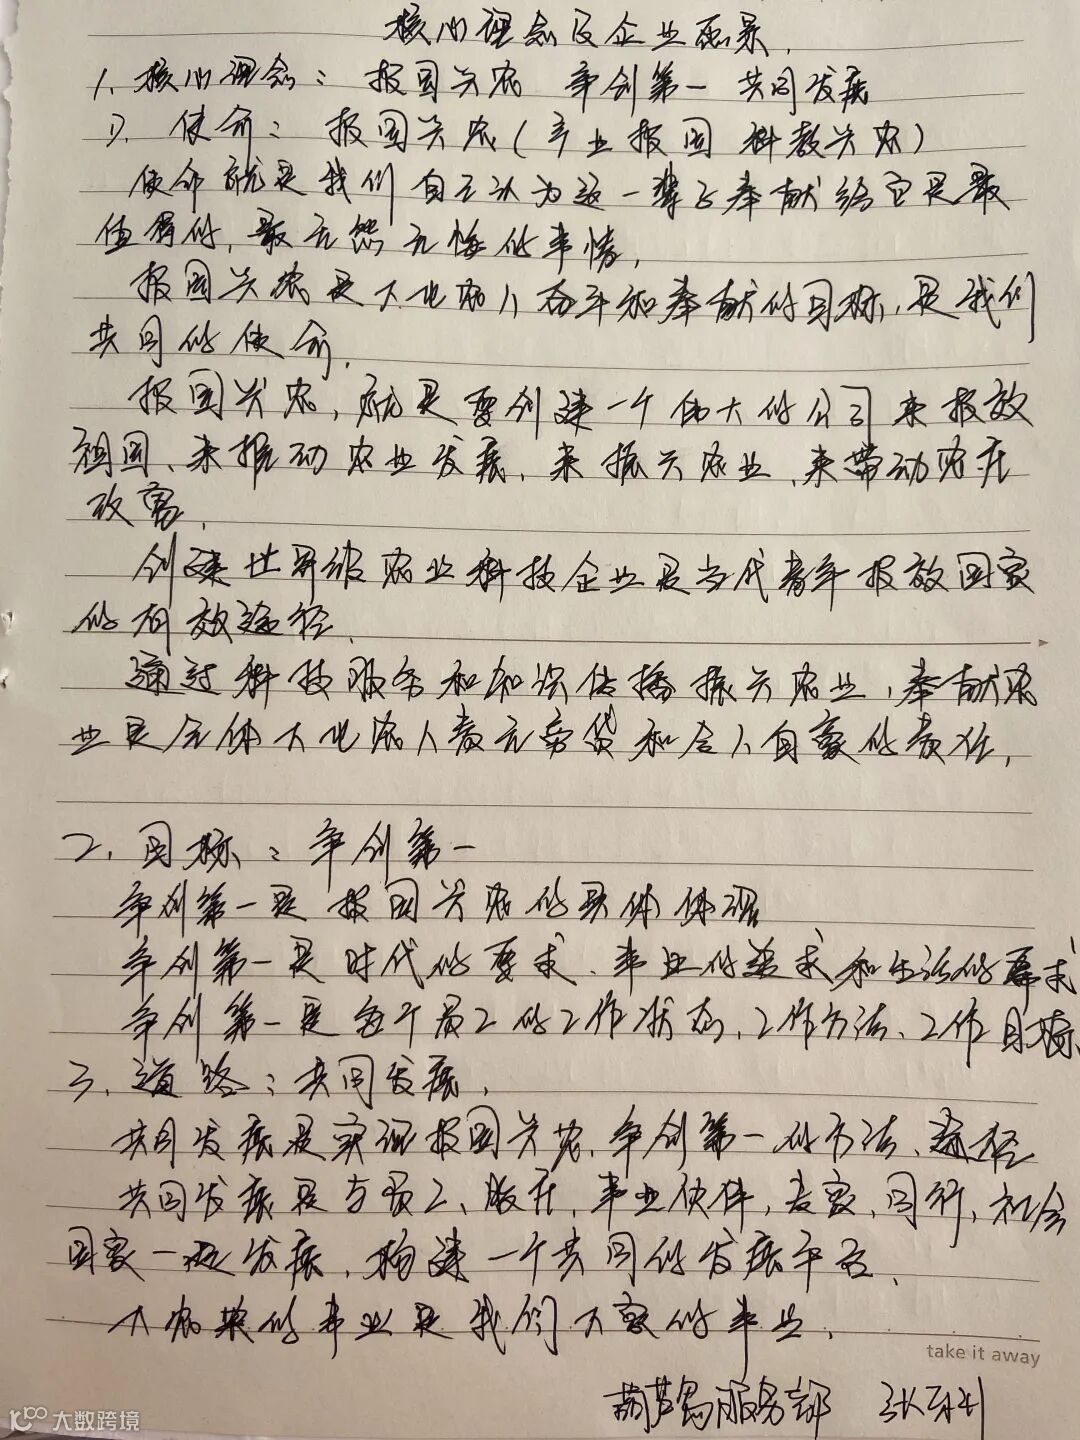 核心理念及企业愿景.
1、核心理念：报国兴农 争创第一 共同发展
1). 使命：报国兴农(产业报国 科教兴农)
使命就是我们自己认为这一辈子奉献给它是最
值得的,最无怨无悔的事情,
报国兴农是大北农人奋斗和奉献的目标,是我们
共同的使命.
报国兴农,就是要创建一个伟大的公司来报效
祖国、来推动农业发展、来振兴农业、来带动农民
致富.
创建世界级农业科技企业是当代青年报效国家
的有效途径.
通过科技服务和知识传播振兴农业,奉献农
业是全体大北农人责无旁贷和令人自豪的责任,
2、目标：争创第一
争创第一是报国兴农的具体体现
争创第一是时代的要求、事业的要求和生活的要求
争创第一是每个员工的工作状态、工作方法、工作目标
3、道路：共同发展.
共同发展是实现报国兴农、争创第一的方法、途径
共同发展是与员工、股东,事业伙伴,专家,同行,社会
国家一起发展,构建一个共同的发展平台.
大农集的事业是我们大家的事业.
take it away
葫芦岛服务部
大数跨境